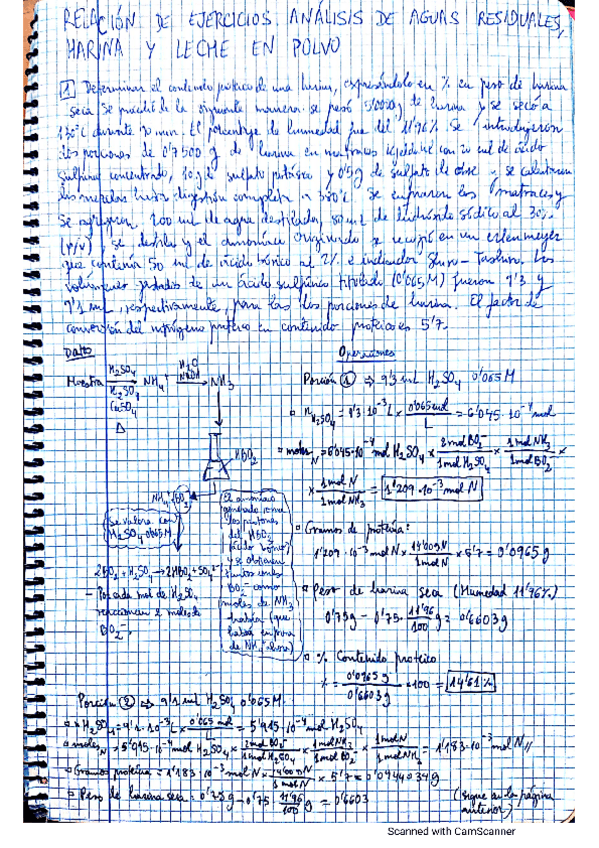 RELACIÓN DE EJERCICIOS ANÁLISIS DE AGUAS RESIDUALES,
HARINA Y LECHE EN POLVO
1 Determinar el contenido proteico de una harina, expresándolo en % en peso de harina
seca. Se procedió de la siguiente manera: se pesó 5'0000g de harina y se secó a
130ºC durante 90 min. El porcentaje de humedad fue del 11'96%. Se introdujeron
dos porciones de 0'7500 g de harina en matraces kjeldahl con 20 mL de ácido
sulfúrico concentrado, 10g de sulfato potásico y 0'5g de sulfato de cobre y se calentaron
las mezclas hasta digestión completa a 350ºC. Se enfriaron los matraces y
se agregaron 200 mL de agua destilada, 80 mL de hidróxido sódico al 30%
(p/v) se destila y el amoniaco originado se recogió en un erlenmeyer
que contenía 50 mL de ácido bórico al 2% e indicador Shuro-Tashiro. Los
volúmenes gastados de un ácido sulfúrico tipificado (0'065M) fueron 9'3 y
9'1 mL, respectivamente, para las dos porciones de harina. El factor de
conversión del nitrógeno proteico en contenido proteico es 5'7.
Datos
Muestra H₂SO₄ K₂SO₄ CuSO₄ Δ → NH₄⁺ H₂O NaOH → NH₃
HBO₂
NH₄⁺, BO₂⁻
Se valora con
H₂SO₄ 0'065M
2BO₂⁻ + H₂SO₄ → 2HBO₂ + SO₄²⁻
- Por cada mol de H₂SO₄
reaccionan 2 moles de
BO₂⁻
El amoniaco
generado toma
los protones
del HBO₂
(ácido bórico)
y se obtienen
tantos iones
BO₂⁻ como
moles de NH₃
había (que
habrá en forma
de NH₄⁺ ahora)
Operaciones
Porción 1 ⇒ 9'3 mL H₂SO₄ 0'065M
n H₂SO₄ = 9'3·10⁻³ L × 0'065 mol / L = 6'045·10⁻⁴ mol
moles N = 6'045·10⁻⁴ mol H₂SO₄ × 2 mol BO₂⁻ / 1 mol H₂SO₄ × 1 mol NH₃ / 1 mol BO₂⁻ ×
× 1 mol N / 1 mol NH₃ = 1'209·10⁻³ mol N
Gramos de proteína:
1'209·10⁻³ mol N × 14'00g N / 1 mol N × 5'7 = 0'0965 g
Peso de harina seca (Humedad 11'96%)
0'75g - 0'75 · 11'96 / 100 g = 0'6603g
% Contenido proteico
% = 0'0965 g / 0'6603 g × 100 = 14'61%
Porción 2 ⇒ 9'1 mL H₂SO₄ 0'065M
n H₂SO₄ = 9'1·10⁻³ L × 0'065 mol / L = 5'915·10⁻⁴ mol H₂SO₄
moles N = 5'915·10⁻⁴ mol H₂SO₄ × 2 mol BO₂⁻ / 1 mol H₂SO₄ × 1 mol NH₃ / 1 mol BO₂⁻ × 1 mol N / 1 mol NH₃ = 1'183·10⁻³ mol N
Gramos proteína = 1'183·10⁻³ mol N × 14'00g N / 1 mol N × 5'7 = 0'0944034g
Peso de harina seca: 0'75g - 0'75 · 11'96 / 100 g = 0'6603
(sigue en la página
anterior)
Scanned with CamScanner